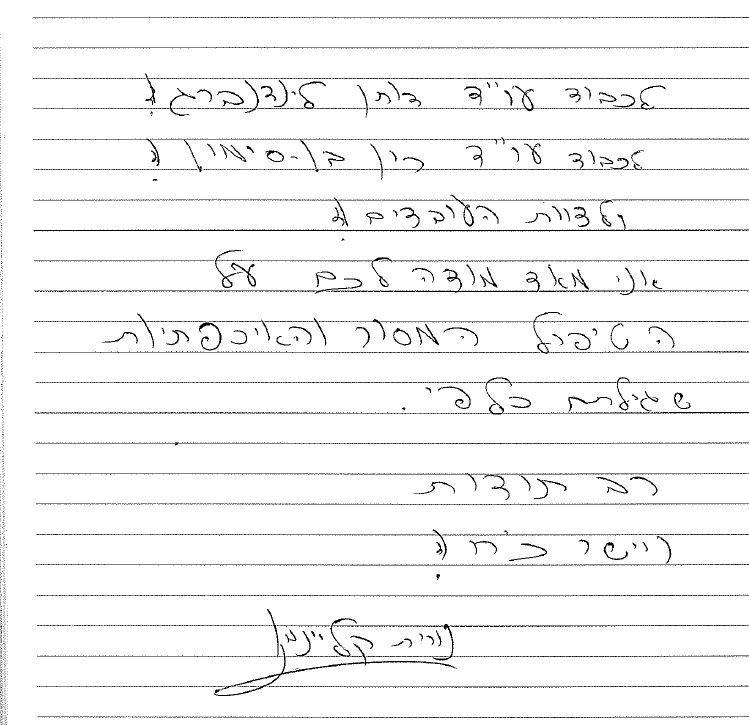 לכבוד עו"ד דותן לינדנברג!
לכבוד עו"ד רון בן-סימון!
ולצוות העובדים!
אני מאד מודה לכם על
הטיפול המסור והאיכפתיות
שגילתם כלפי.
רב תודות
ויישר כ"ח!
נורית קליינמן